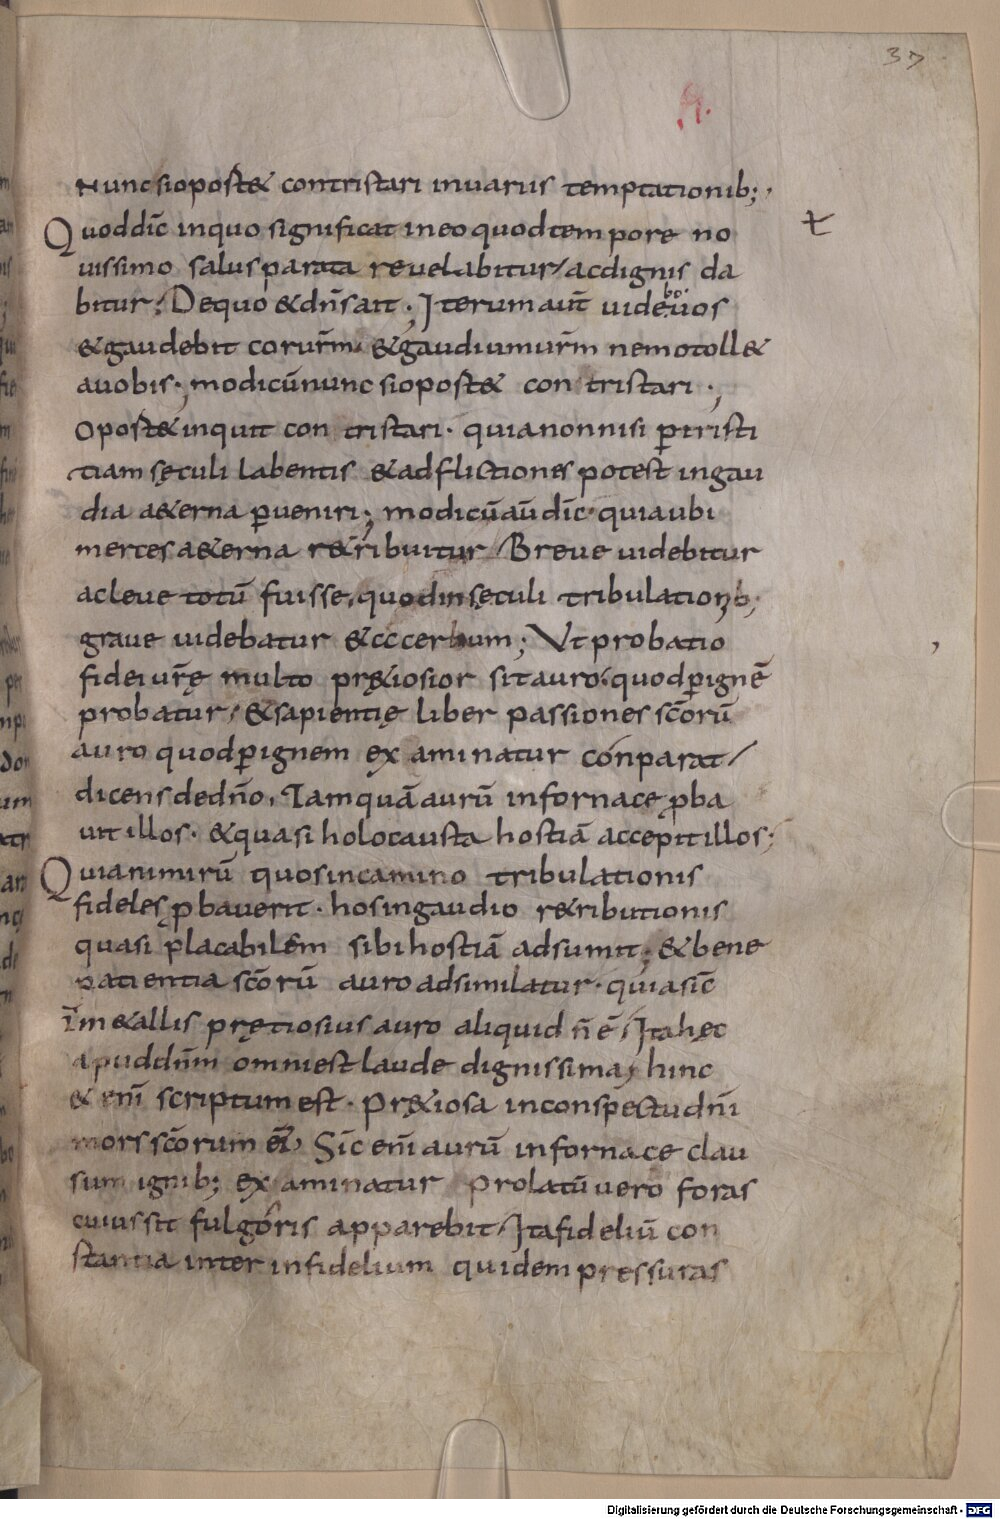 37
A.
Nunc si oport& contristari in variis temptationib;
Quod dic̄ in quo significat in eo quod tempore no
uissimo salus parata reuelabitur / ac dignis da
bitur; De quo & dn̄s ait. Iterum aūt uidebo uos
& gaudebit cor ur̄m & gaudium ur̄m nemo toll&
a uobis; modicū nunc si oport& contristari;
Oport& inquit contristari. quia non nisi ꝑ tristi
tiam sęculi labentis & adflictiones potest in gau
dia a&erna ꝑueniri; modicū aūt dic̄ quia ubi
merces a&erna r&ribuitur / Breue uidebitur
ac leue totū fuisse, quod in sęculi tribulationib;
graue uidebatur & accerbum; Vt probatio
fidei ur̄ę multo pr&iosior sit auro. quod ꝑ ignē
probatur / & sapientię liber passiones sc̄orū
auro quod ꝑ ignem examinatur conparat /
dicens de dn̄o, Tamquā aurū in fornace ꝓba
uit illos. & quasi holocausta hostiā accepit illos;
Quia nimirū quos in camino tribulationis
fideles ꝓbauerit. hos in gaudio r&ributionis
quasi placabilem sibi hostiā adsumit; & bene
patientia sc̄orū auro adsimilatur. quia sic̄
in m&allis prętiosius auro aliquid n̄ ē / Ita hęc
apud dn̄m omni est laude dignissima, hinc
& eni̅ scriptum est. Pr&iosa in conspectu dn̄i
mors sc̄orum ei; Sic̄ eni̅ aurū in fornace clau
sum ignib; examinatur prolatū uero foras
cuius sit fulgoris apparebit / Ita fideliū con
stantia inter infidelium quidem pressuras
Digitalisierung gefördert durch die Deutsche Forschungsgemeinschaft - DFG